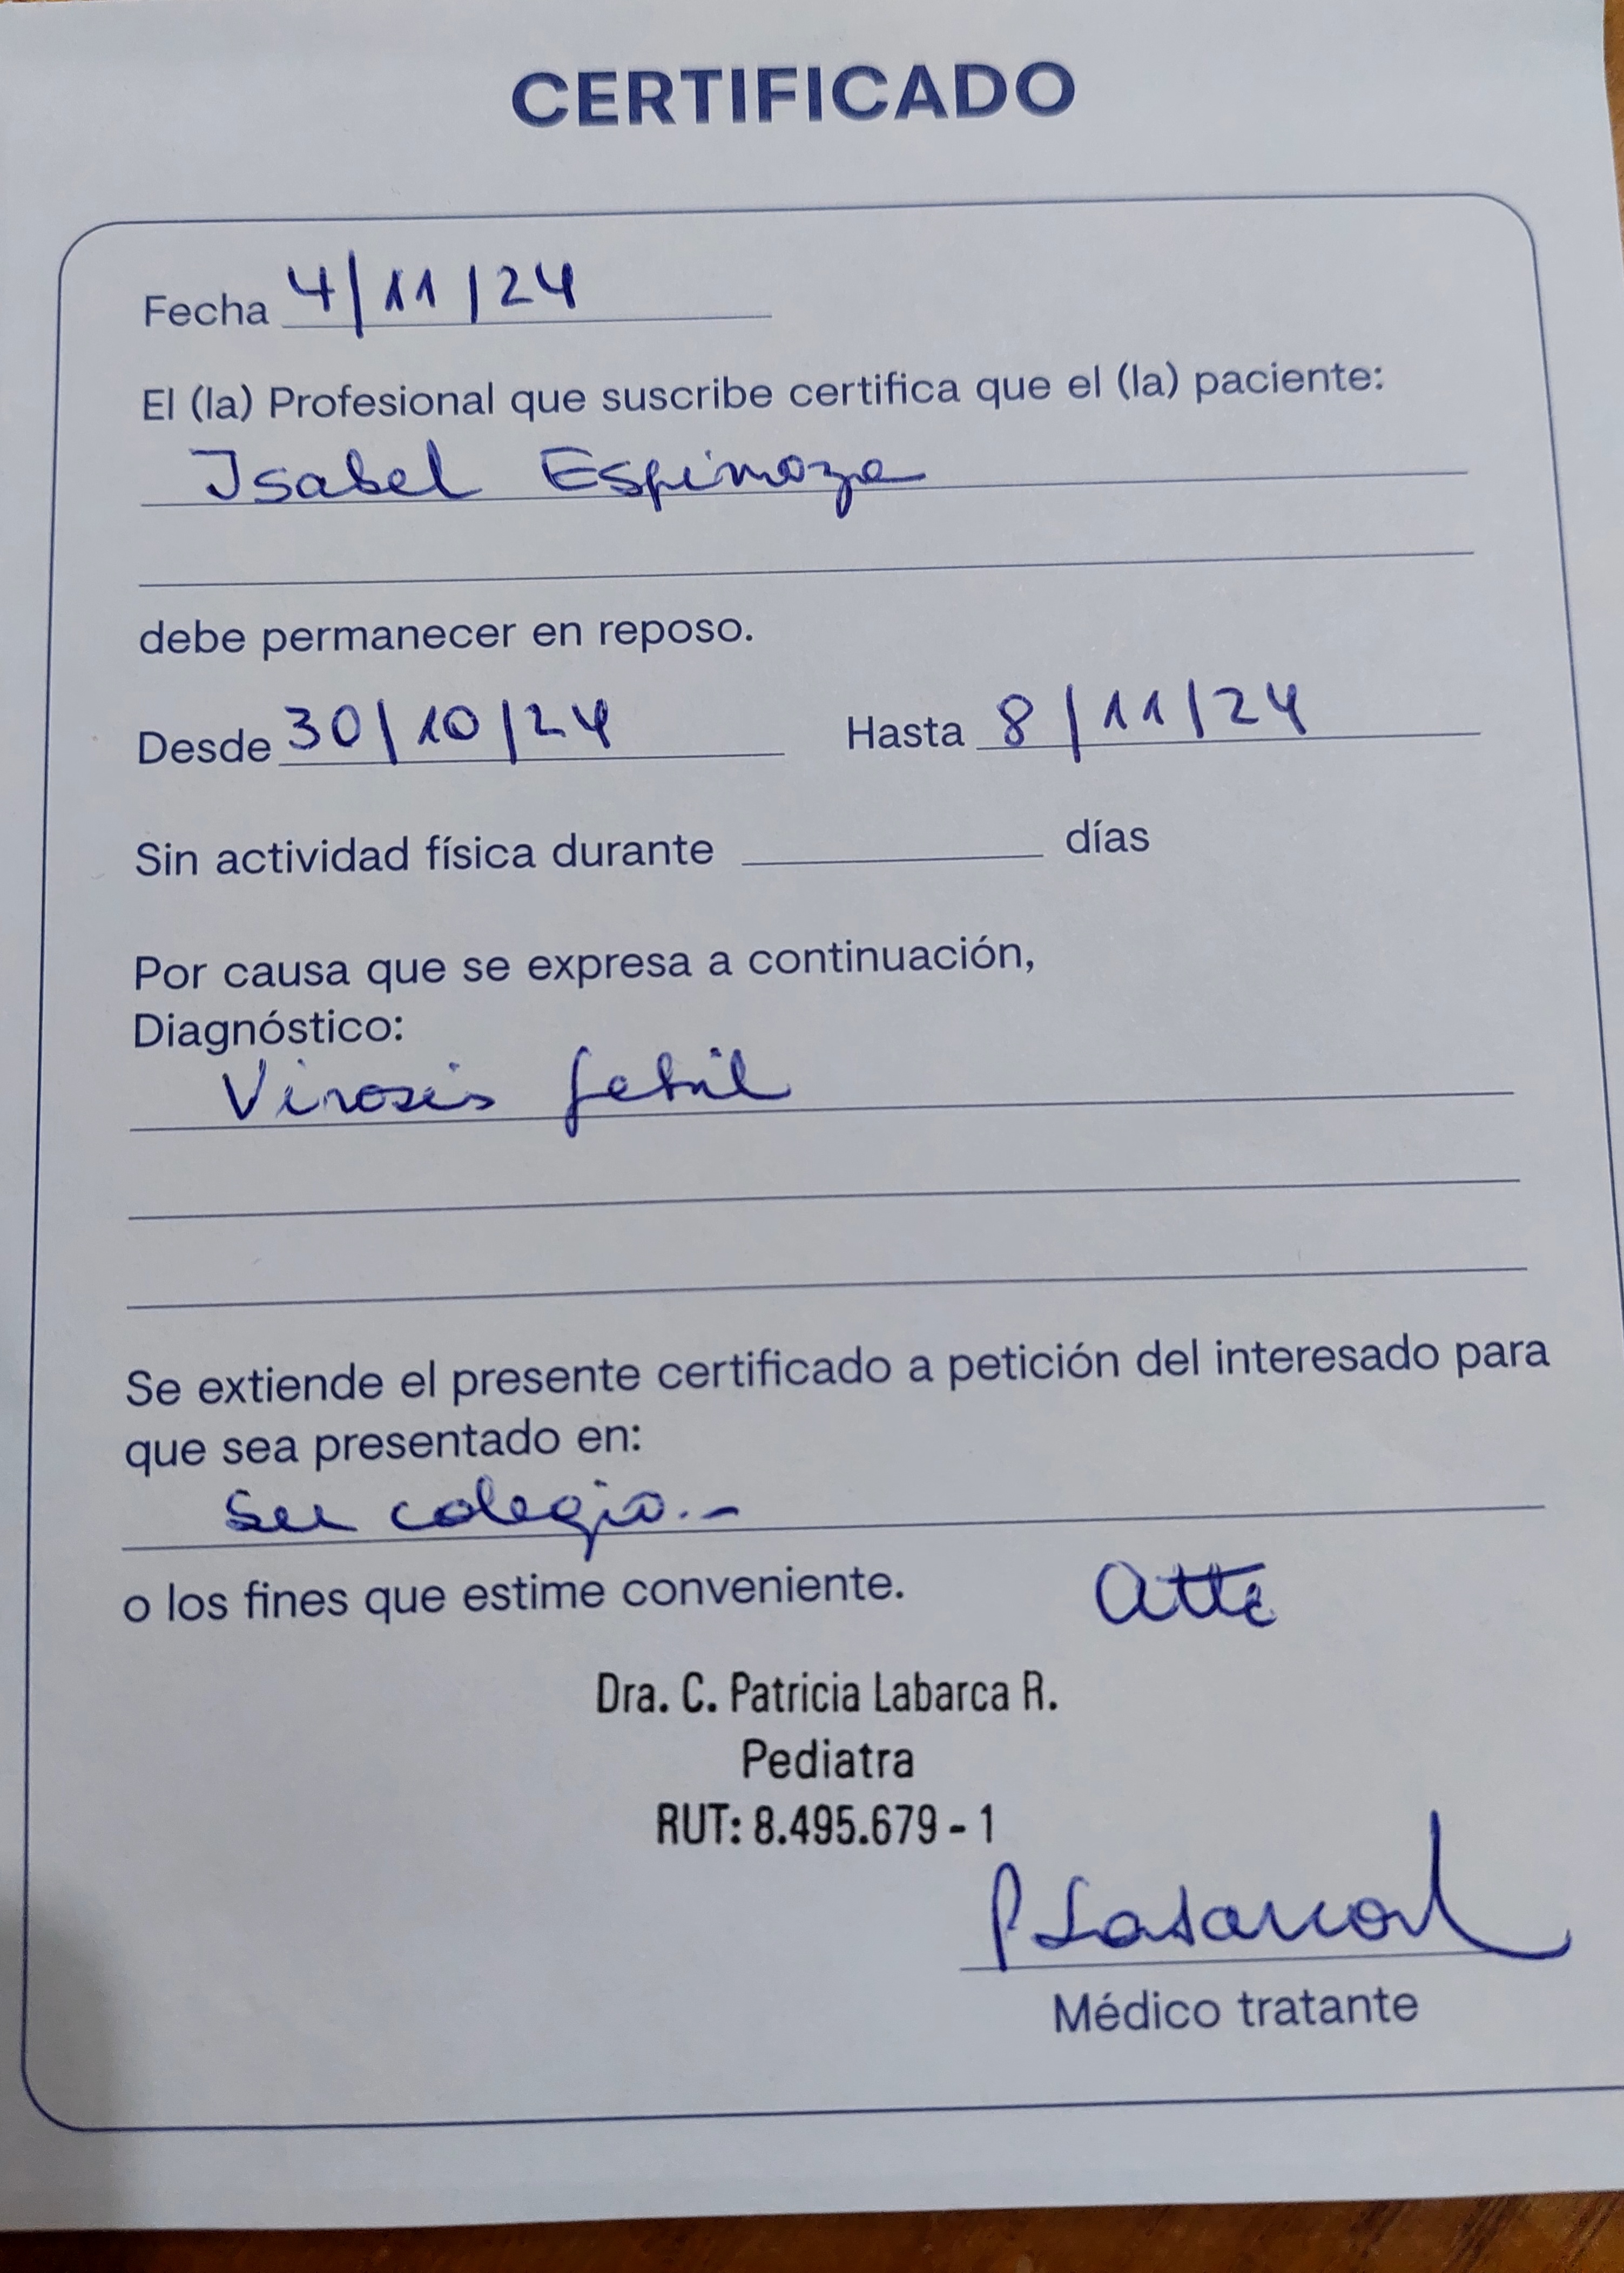 CERTIFICADO
Fecha 4/11/24
El (la) Profesional que suscribe certifica que el (la) paciente:
Isabel Espinoza
debe permanecer en reposo.
Desde 30/10/24 Hasta 8/11/24
Sin actividad física durante días
Por causa que se expresa a continuación,
Diagnóstico:
Virosis febril
Se extiende el presente certificado a petición del interesado para
que sea presentado en:
su colegio.-
o los fines que estime conveniente. Atte
Dra. C. Patricia Labarca R.
Pediatra
RUT: 8.495.679 - 1
P Labarca
Médico tratante